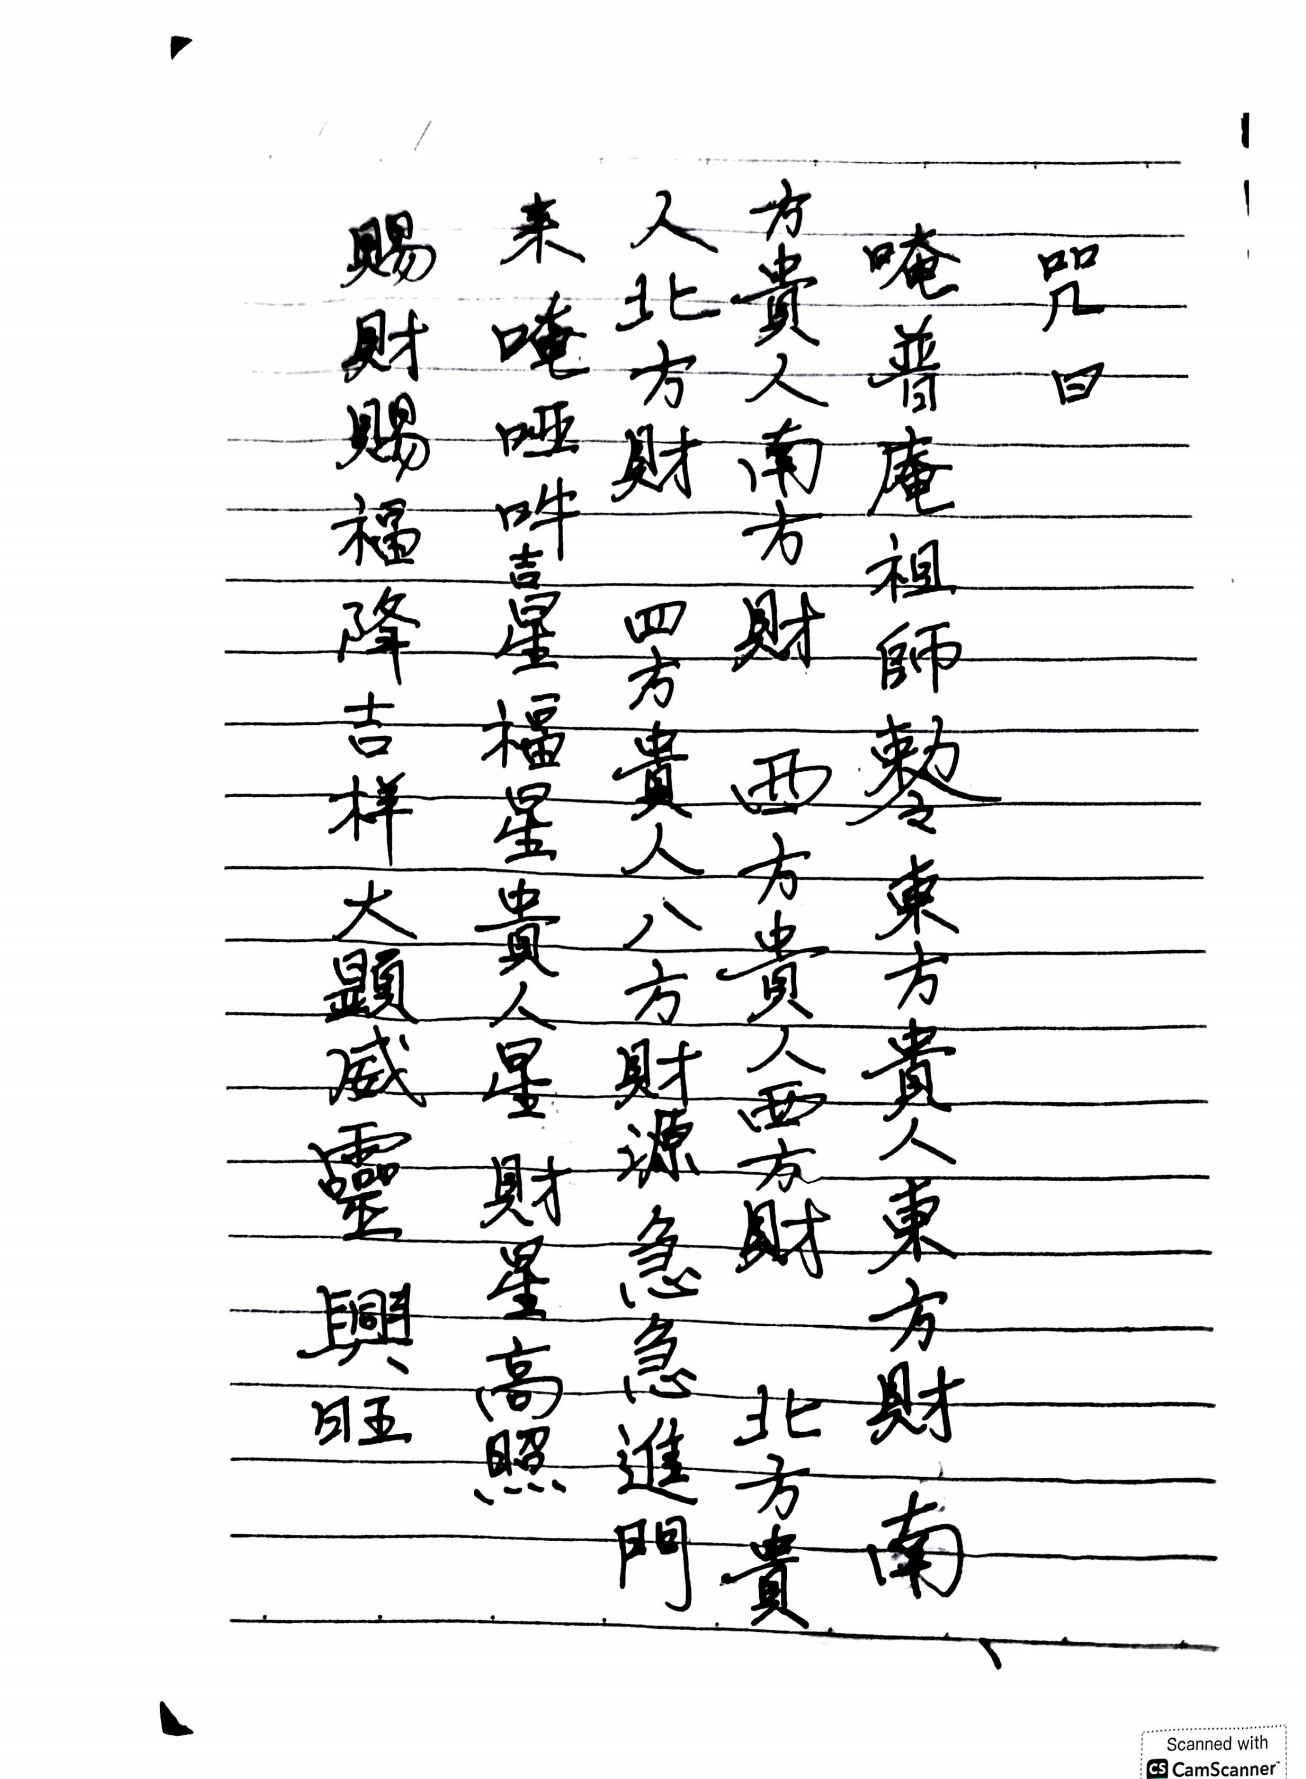 咒曰
唵普庵祖師敕令東方貴人東方財南
方貴人南方財西方貴人西方財北方貴
人北方財四方貴人八方財源急急進門
来唵啞吽吉星福星貴人星財星高照
賜財賜福降吉样大顯威靈興旺
Scanned with
CS CamScanner